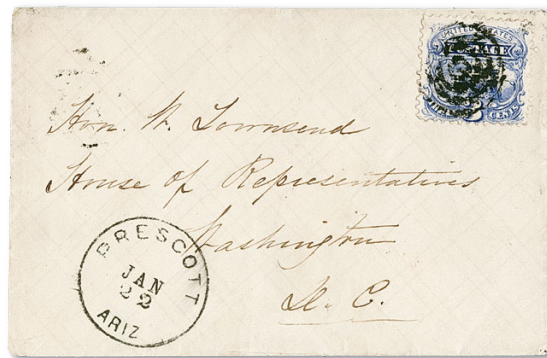 UNITED STATES
POSTAGE
Hon. W. Townsend
House of Representatives
Washington
D. C.
PRESCOTT
JAN
22
ARIZ